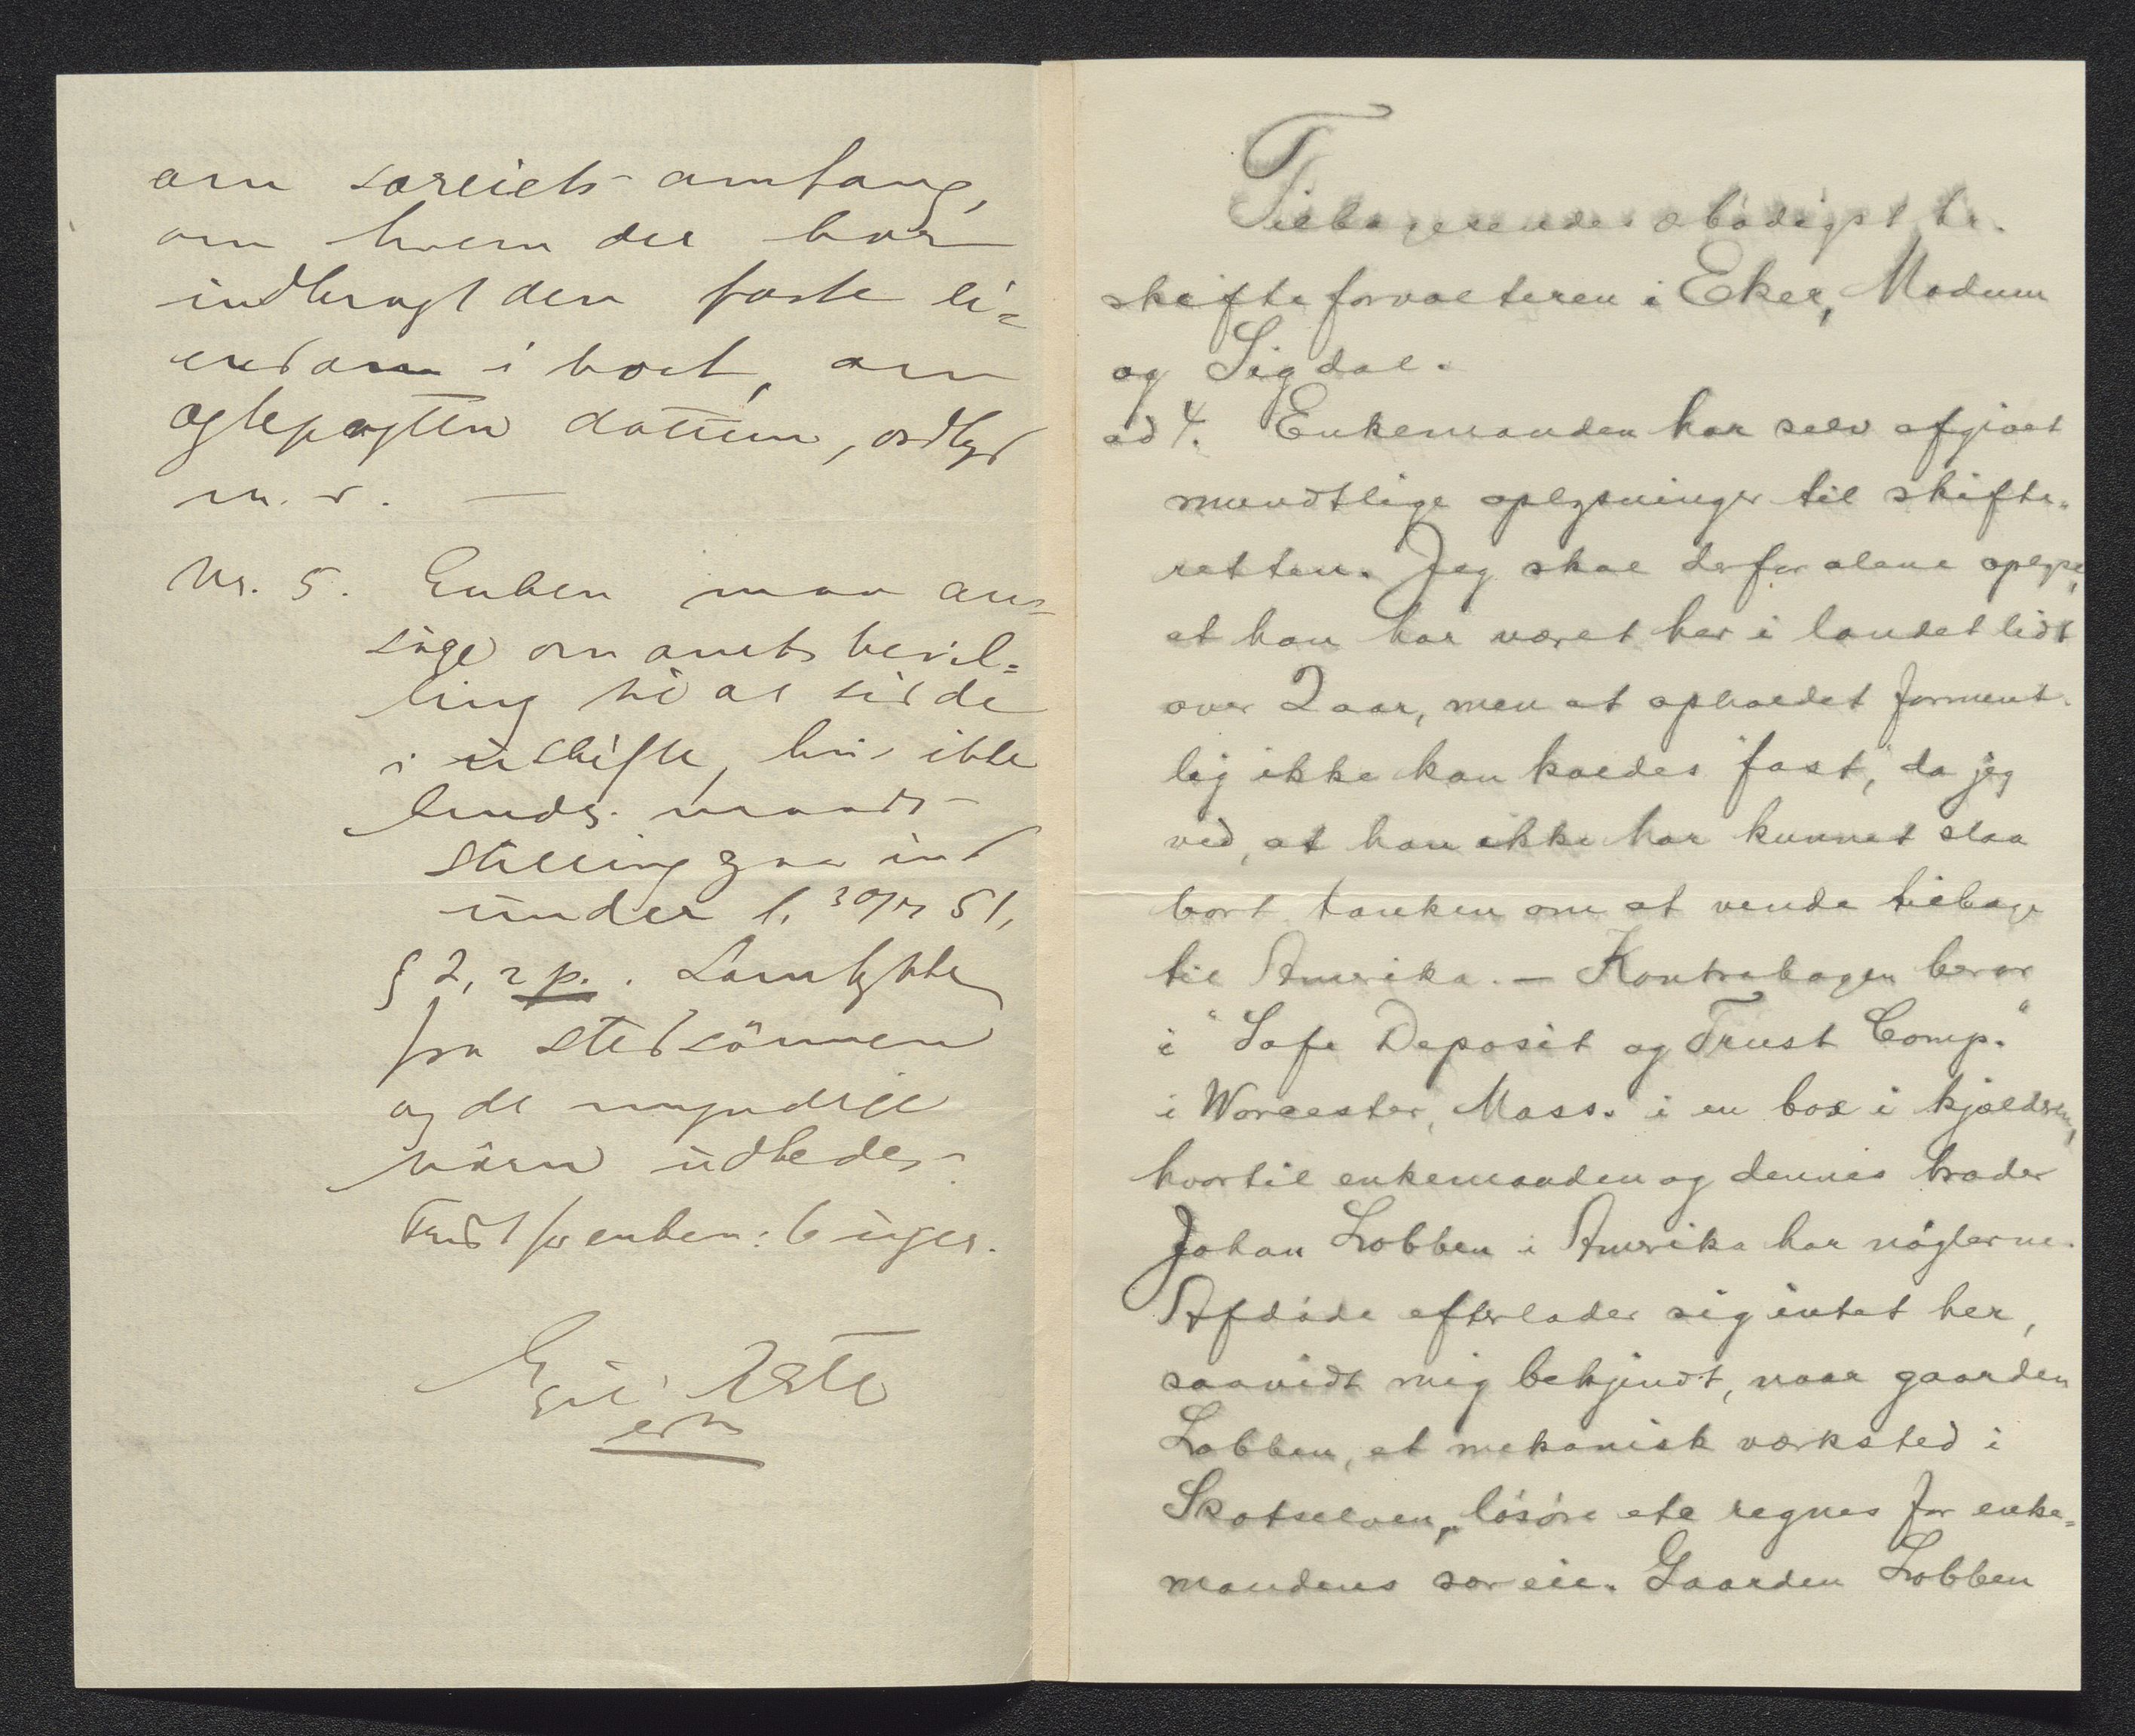 om særeiets omfang,
om hvem der har
indbragt den faste ei=
endom i boet, om
ægtepagten datum, ordlyd
m. v. —
Nr. 5. Enken maa an=
søge om amtsbevil=
ling til at sidde
i uskifte, hvis ikke
hendes mands
stilling gaar ind
under l. 30/7 51,
§ 2, 2 p. Samtykke
fra stedsönnen
og de myndige
börn udbedes.
Frist for enken: 6 uger.
Tilbagesendes ærbødigst hr.
skifteforvalteren i Eker, Modum
og Sigdal.
ad 4. Enkemanden har selv afgivet
mundtlige oplysninger til skifte-
retten. Jeg skal derfor alene oplyse,
at han har været her i landet lidt
over 2 aar, men at opholdet forment-
lig ikke kan kaldes "fast", da jeg
ved, at han ikke har kunnet slaa
bort tanken om at vende tilbage
til Amerika. — Kontrabogen beror
i "Safe Deposit og Trust Comp."
i Worcester, Mass. i en box i kjælderen,
hvortil enkemanden og dennes broder
Johan Lobben i Amerika har nøglerne.
Afdøde efterlader sig intet her,
saavidt mig bekjendt, naar gaarden
Lobben, et mekanisk værksted i
Skotselven, løsøre etc regnes for enke=
mandens særeie. Gaarden Lobben